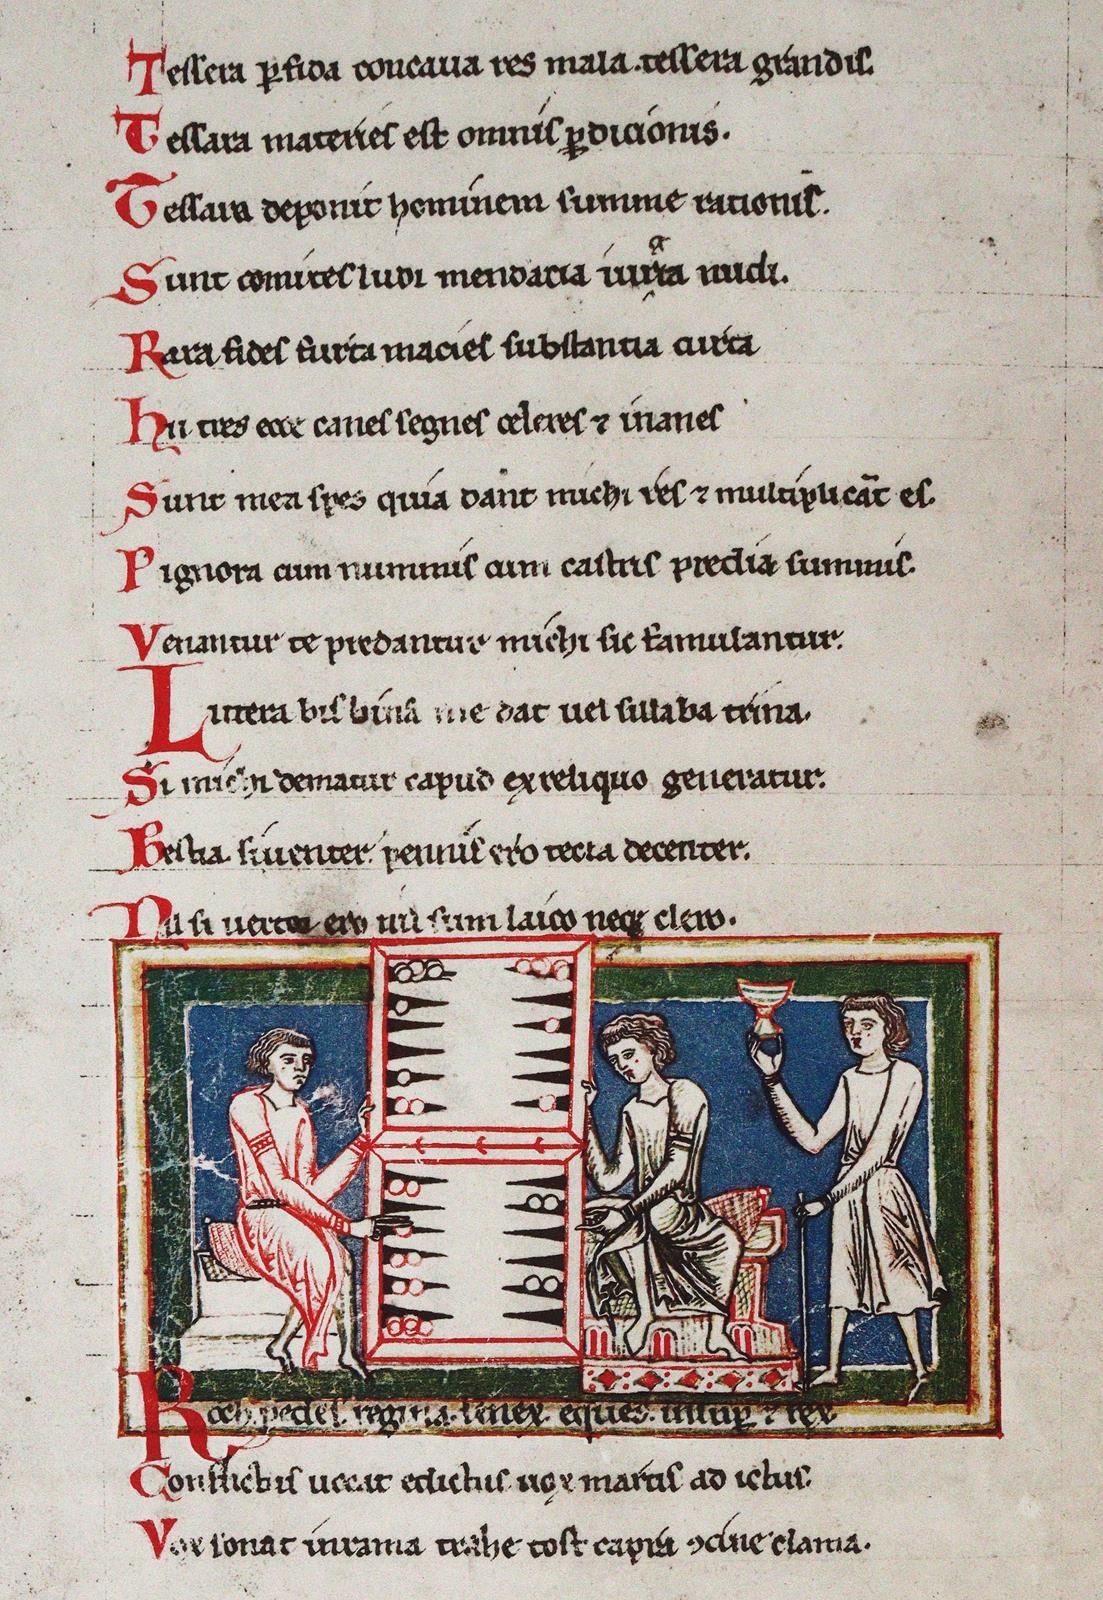 Tessera ꝑfida concaua res mala. tessera grandis.
Tessara materies est omnis ꝑdicionis.
Tessara deponit hominem summe rationis.
Sunt comites ludi mendacia nudi.
Rara fides furta macies substantia curta
Hii tres ecce canes segnes celeres ⁊ inanes
Sunt mea spes quia dant michi res ⁊ multiplicāt es.
Pignora cum nummis cum castris predia summis.
Venantur te predantur michi sic famulantur.
Littera bis bina me dat uel sillaba trina.
Si michi dematur capud ex reliquo generatur.
Bestia. si uenter. pennis ero tecta decenter.
Nil si uertor ero nil sum laico neqꝫ clero.
Roch. pedes. regina. senex. eques. insuꝑ ⁊ rex
Conflictus uocat edictus uox martis ad ictus.
Vox sonat inrama trahe tost capra ꝯcine clama.